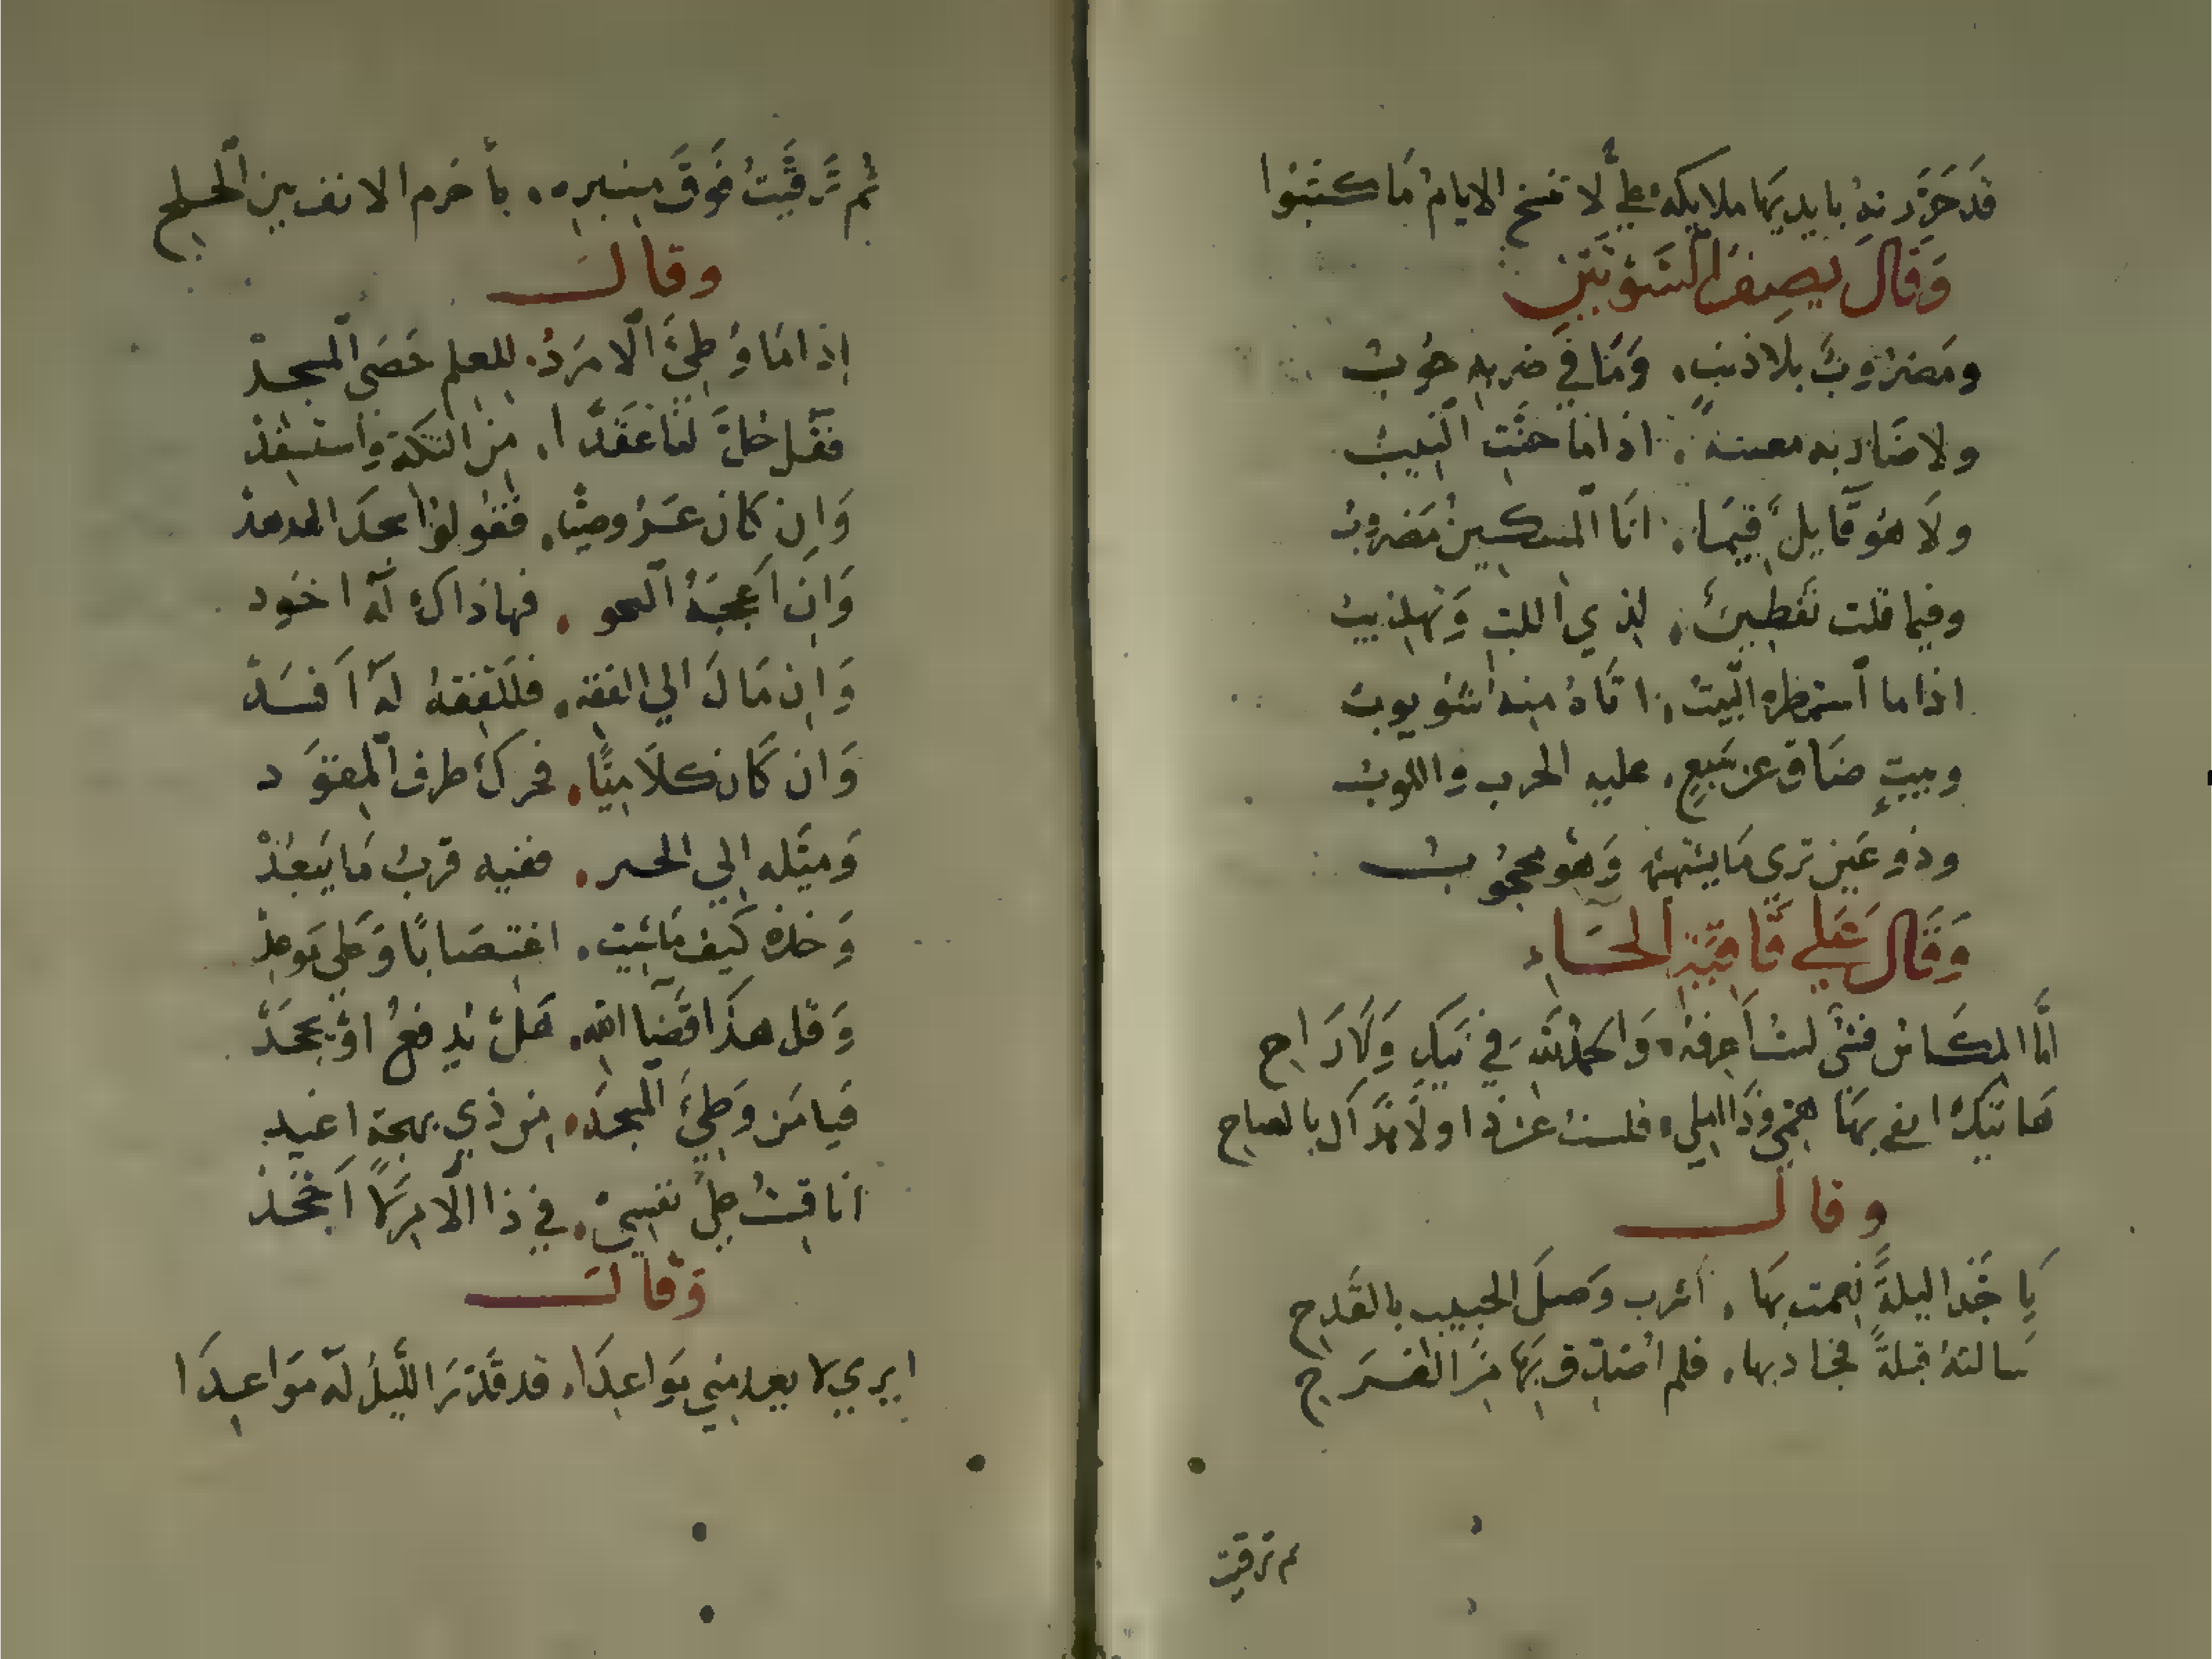 قَد حَرَّرته بايديها ملايكة على لا تنسخ الايامُ مَا كتَبُوا
وَقَالَ يصِفُ
ومَضرُوبٌ بلا ذنبٍ . وَمَا في ضربه حُوبُ
ولا ضَارٍ به . اذا مَا حنَّتِ النيبُ
ولَا هُو قَايلٌ فِيمَا . انَا المسكينُ مَضروبُ
وفيما قلت تَقطيبٌ . لِذي اللبِ وَتهذيبُ
اذا ما استمطره البيتُ . اتَاهُ منه شُؤبوبُ
وبيتٍ ضَاق عن سَبعٍ . عليه الحرب واللوبُ
وذو عَينٍ تَرى مَا يشتهيه وَهُو محجُوبُ
وَقَالَ عَلى قَافيَةِ الحَاءِ
امَّا المكَاسُ فشئ لستُ اَعرفهُ . وَالحمدُ للهِ في نيكٍ وَلَا رَاحِ
هَا تيك انفي بهَا همّي وَذَا املي . فلستُ عن ذا ولَا هَذَاك بالصاحِ
وقال
يَا حَبذا ليلةً نعمت بهَا . اشرب وَصلَ الحبيب بالقَدحِ
سالتهُ قبلةً فجاد بها . فلم اُصدِّق بهَا مِنَ الفَرَحِ
ثم ترقيت
ثم تَرقَّيتُ فَوقَ مِنبره . بأخرم الانف بين الجلح
وقال
اِذا مَا وَطِئَ الامرَدُ للعلم حَصَى المسجدْ
فقُل حُلَّ لنَا عَقدًا . مِن التكة وَاستنفذْ
وَاِن كَانَ عَرُوضيًّا . فَقولوُا سجدَ الهدهدْ
وَاِن اَعجَبَهُ النحو . فهاذاك لَهُ اَجْوَد
وَاِن مَالَ الي الفقه . فللفقه لهُ اَفسَدْ
وَان كَانَ كلَاميًّا . فحرك طرف المقوَد
وَميّله الي الجس . ففيه قربُ مَا يَبعُدْ
وَخذهُ كَيف مَا شيت . اغتصَابًا وَعلى مَوعدْ
وَقل هذَا قضَا الله . هَل يُدفعُ اوْ يجحَدْ
فيامَن وَطِئَ المسجدَ . مِن ذي بهجةٍ اغيد
انَا قِستُ علي نفسي . في ذا الامر لَا اَجحَدْ
وقال
ايري لا يعدمني مَواعِدَا . قد قَدَّرَ اللَّيلُ لَهُ مَوَاعِدَا